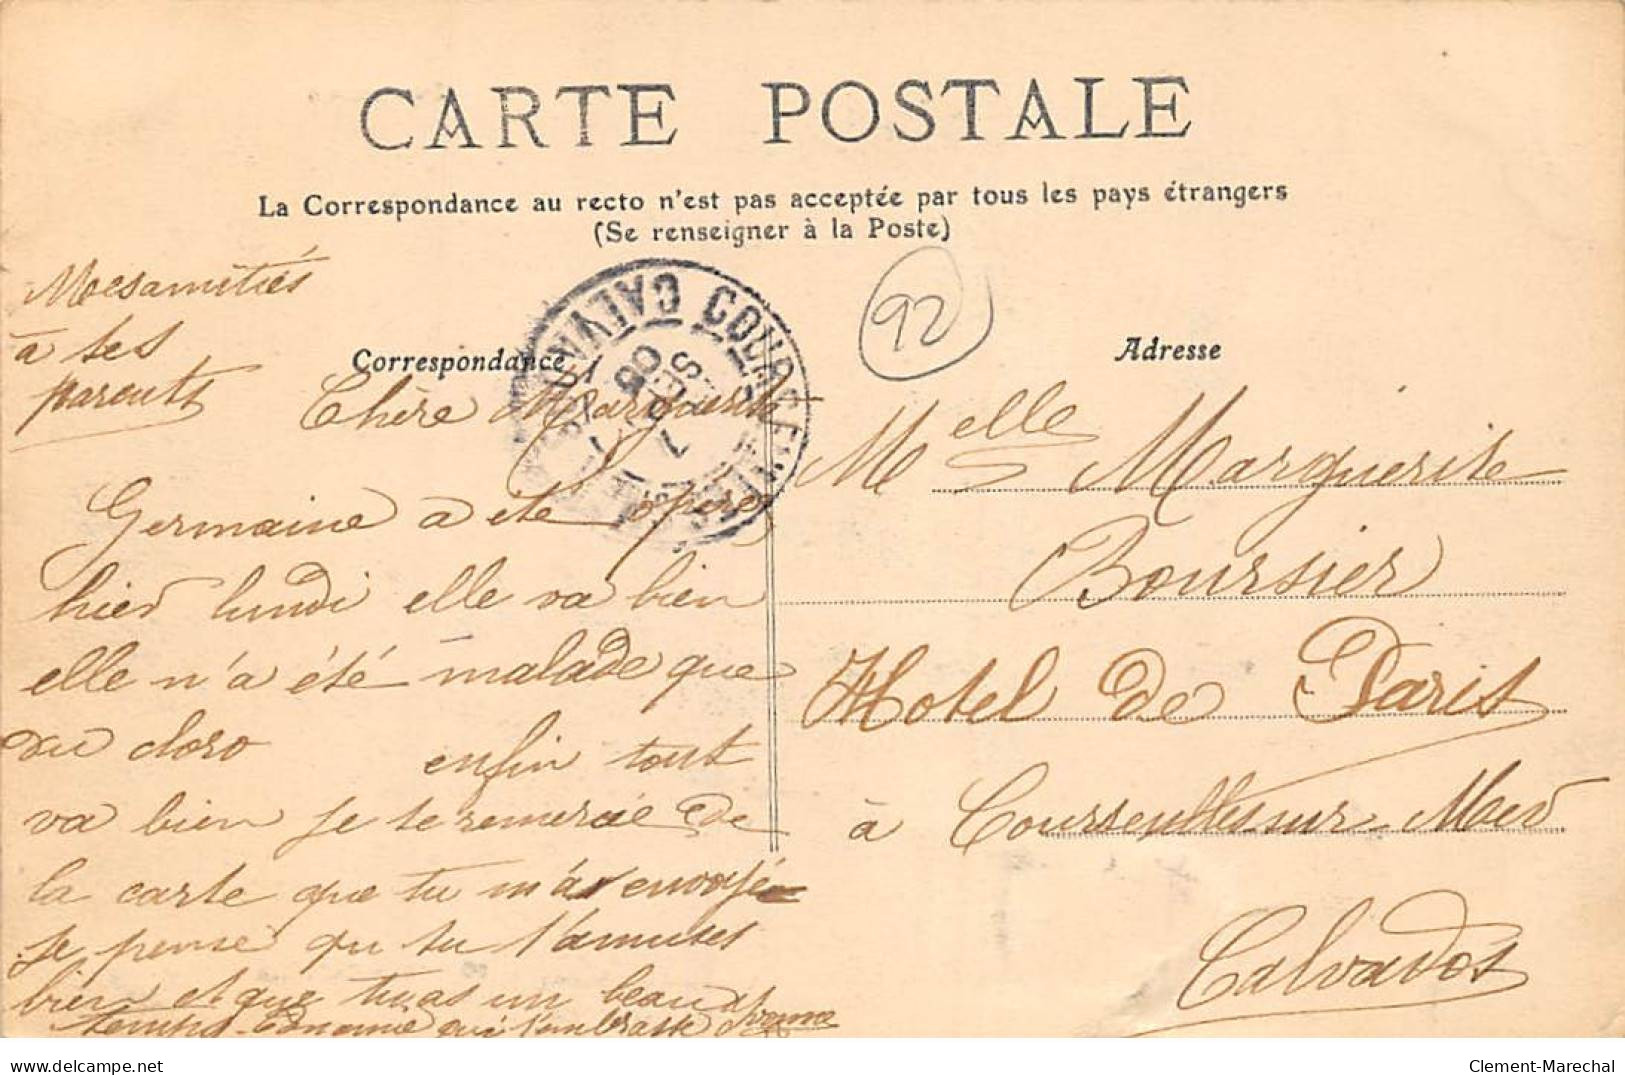 CARTE POSTALE
La Correspondance au recto n'est pas acceptée par tous les pays étrangers
(Se renseigner à la Poste)
Mesamitiés
à tes
parents
Correspondance
Chère Marguerite
Germaine a ete opéré
hier lundi elle va bien
elle n'a été malade que
du cloro enfin tout
va bien je te remercie de
la carte que tu m'as envoyée
je pense qu tu t'amuses
bien et que tu as un beau
temps qui t'embrasse Yvonne
92
COURSEULLES CALVADOS
7
SEPT
08
Adresse
Melle Marguerite
Boursier
Hotel de Paris
à Courseulles sur Mer
Calvados
delcampe.net
Clement-Marechal